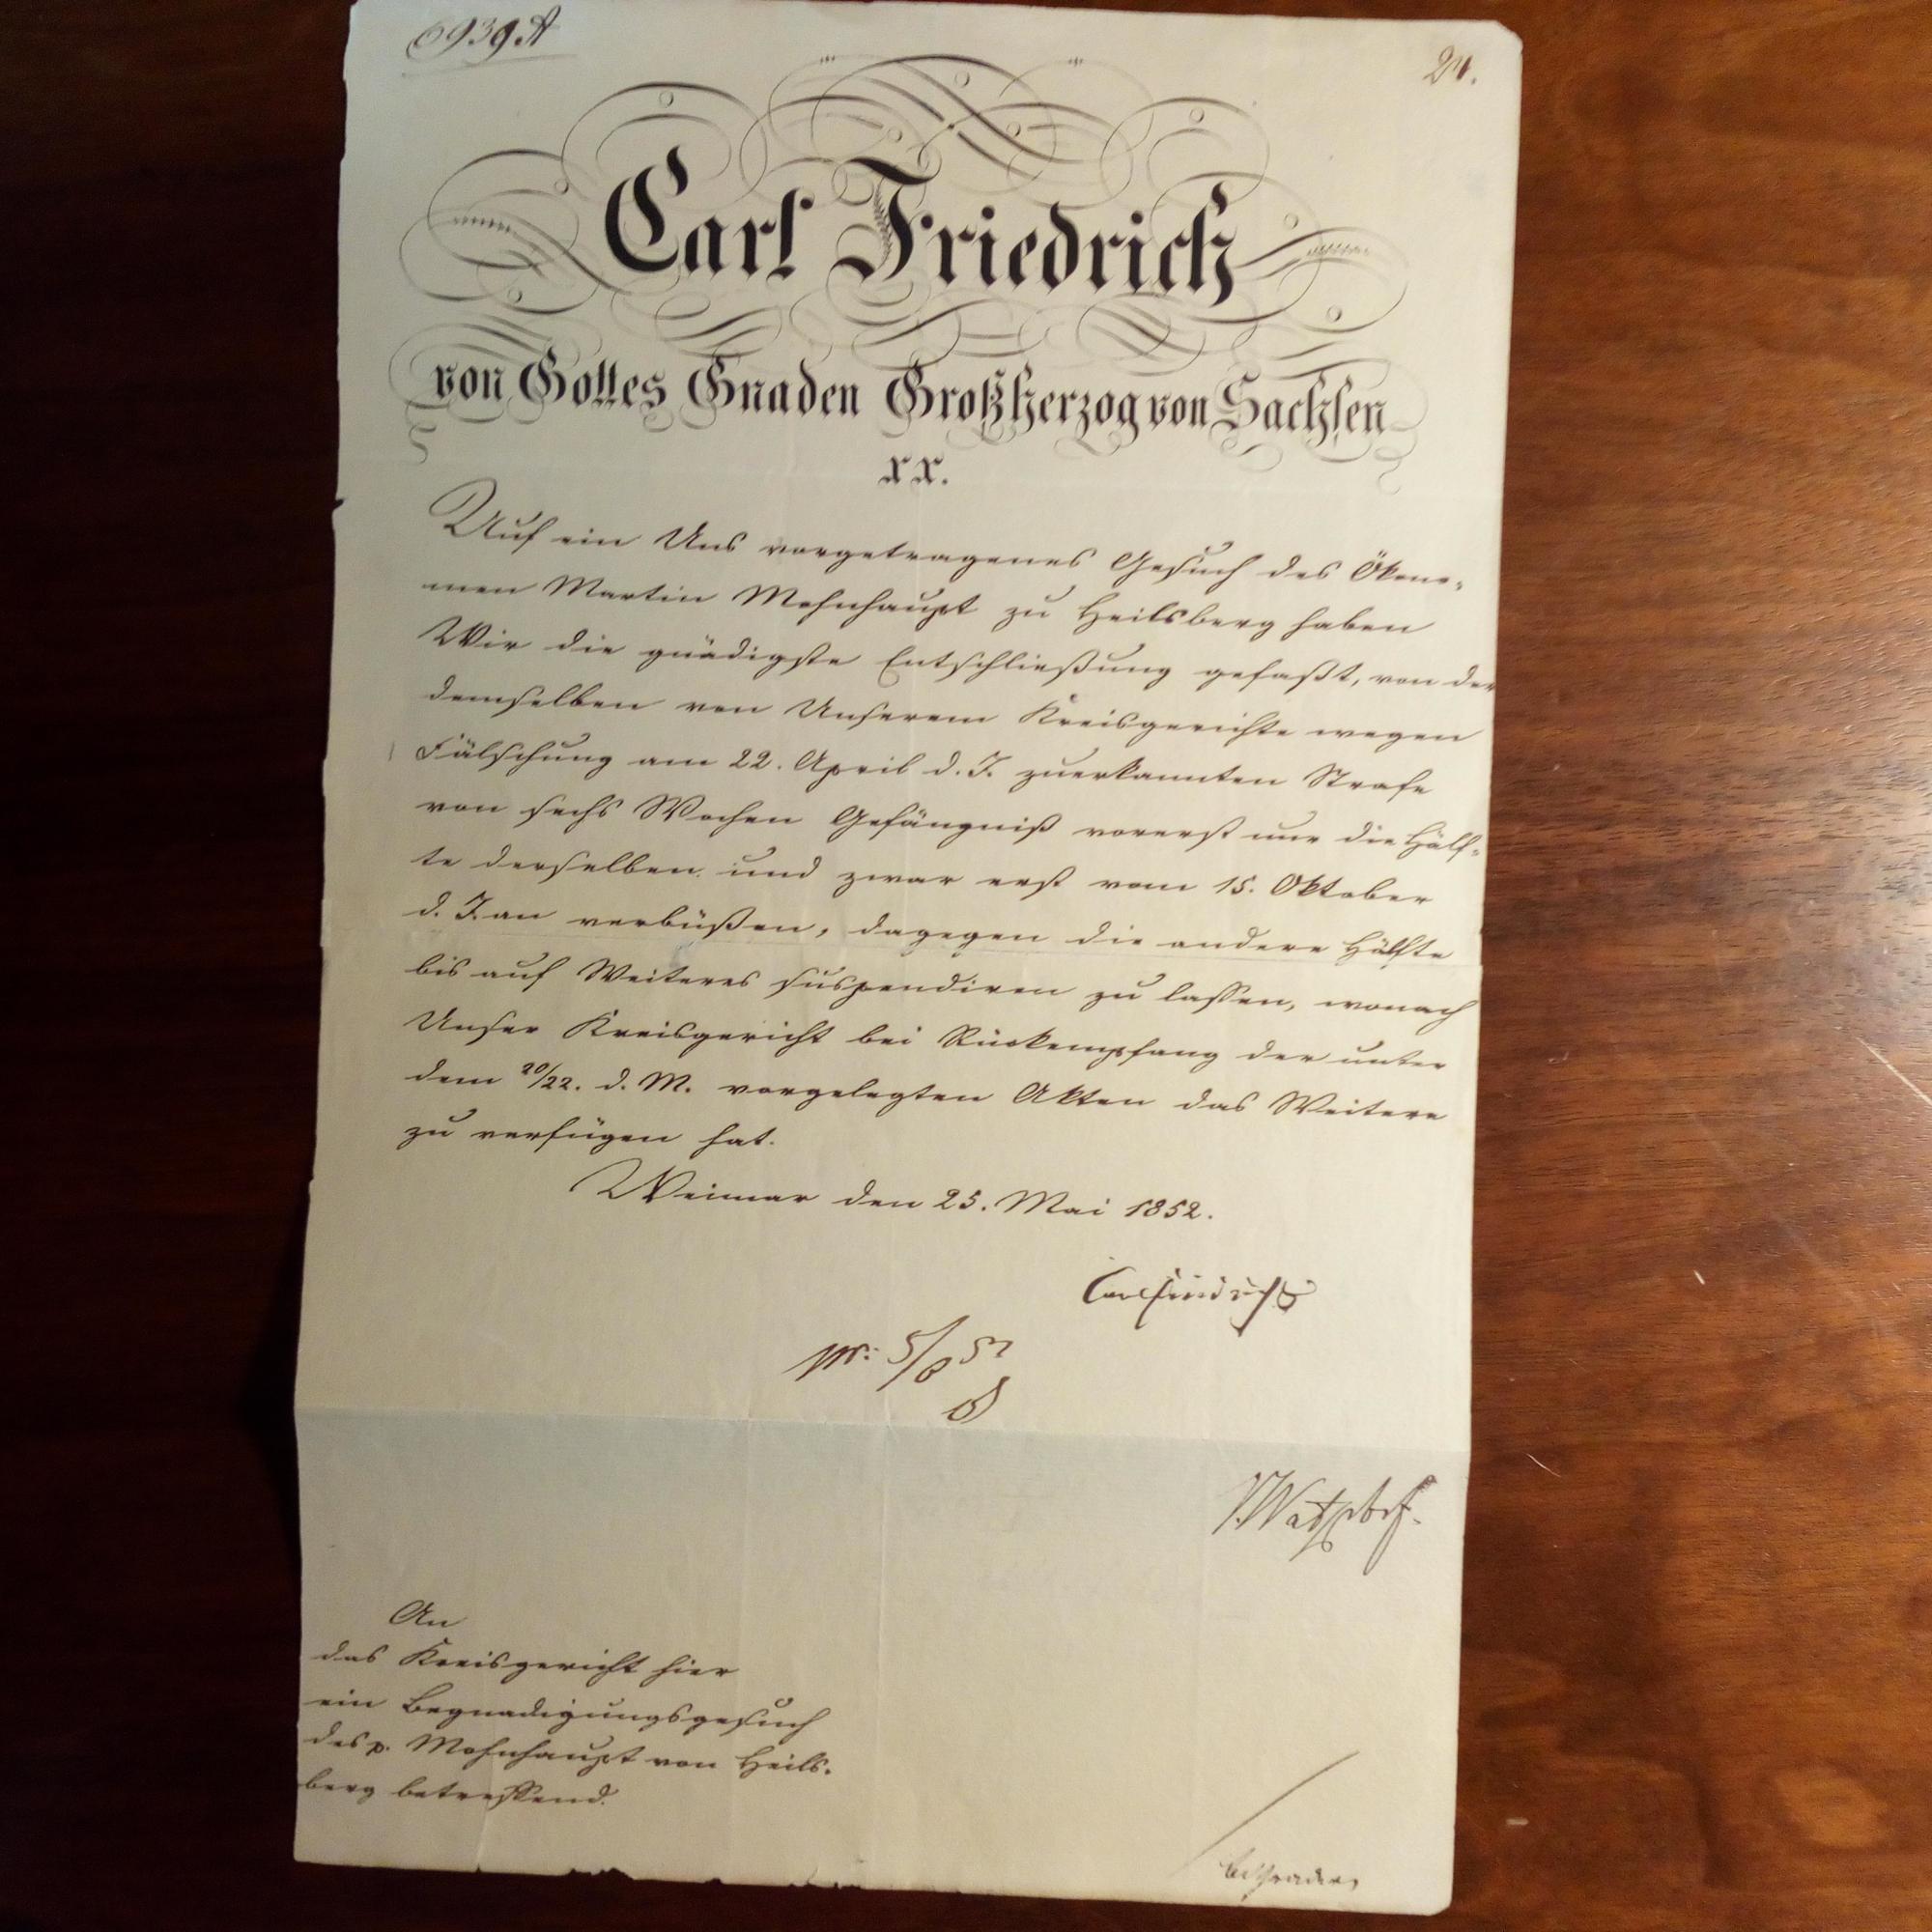 6939 A
24.
Carl Friedrich
von Gottes Gnaden Großherzog von Sachsen
xx.
Auf ein Uns vorgetragenes Gesuch des Ökono-
men Martin Mohnhaupt zu Heilsberg haben
Wir die gnädigste Entschließung gefaßt, von der
demselben von Unserem Kreisgerichte wegen
Fälschung am 22. April d. J. zuerkannten Strafe
von sechs Wochen Gefängniß vorerst nur die Hälf-
te derselben und zwar erst vom 15. Oktober
d. J. an verbüßen, dagegen die andere Hälfte
bis auf Weiteres suspendiren zu lassen, wonach
Unser Kreisgericht bei Rückempfang der unter
dem 20/22. d. M. vorgelegten Akten das Weitere
zu verfügen hat.
Weimar den 25. Mai 1852.
Carl Friedrich
pr. 5/6 52
v. Watzdorf.
An
das Kreisgericht hier
ein Begnadigungsgesuch
des p. Mohnhaupt von Heils-
berg betreffend.